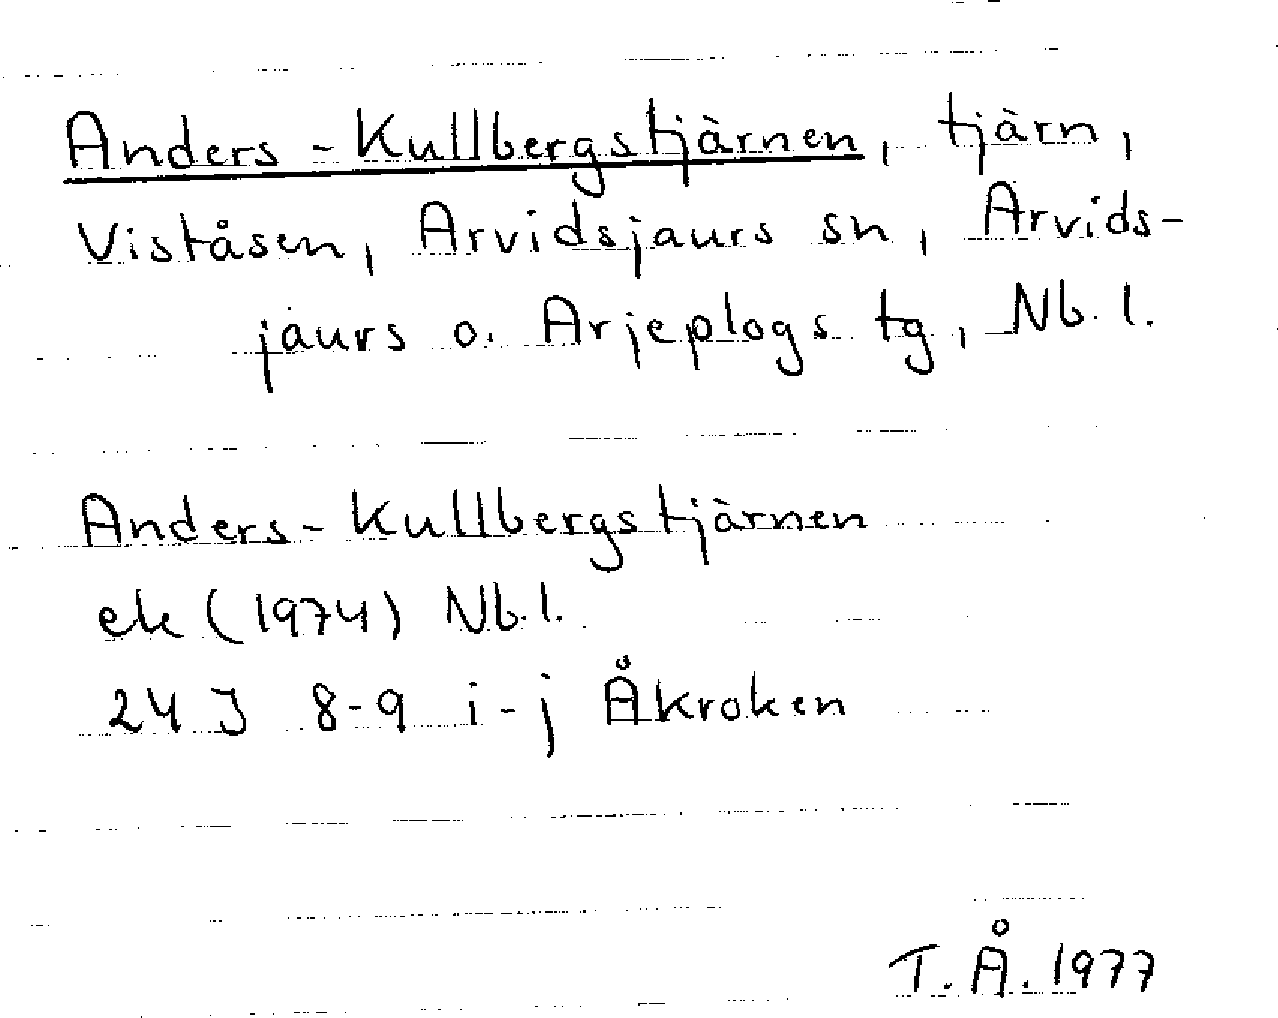 Anders-Kullbergstjärnen, tjärn,
Viståsen, Arvidsjaurs sn, Arvids-
jaurs o. Arjeplogs tg, Nb. l.
Anders-Kullbergstjärnen
ek (1974) Nb.l.
24 J 8-9 i-j Åkroken
T.Å. 1977